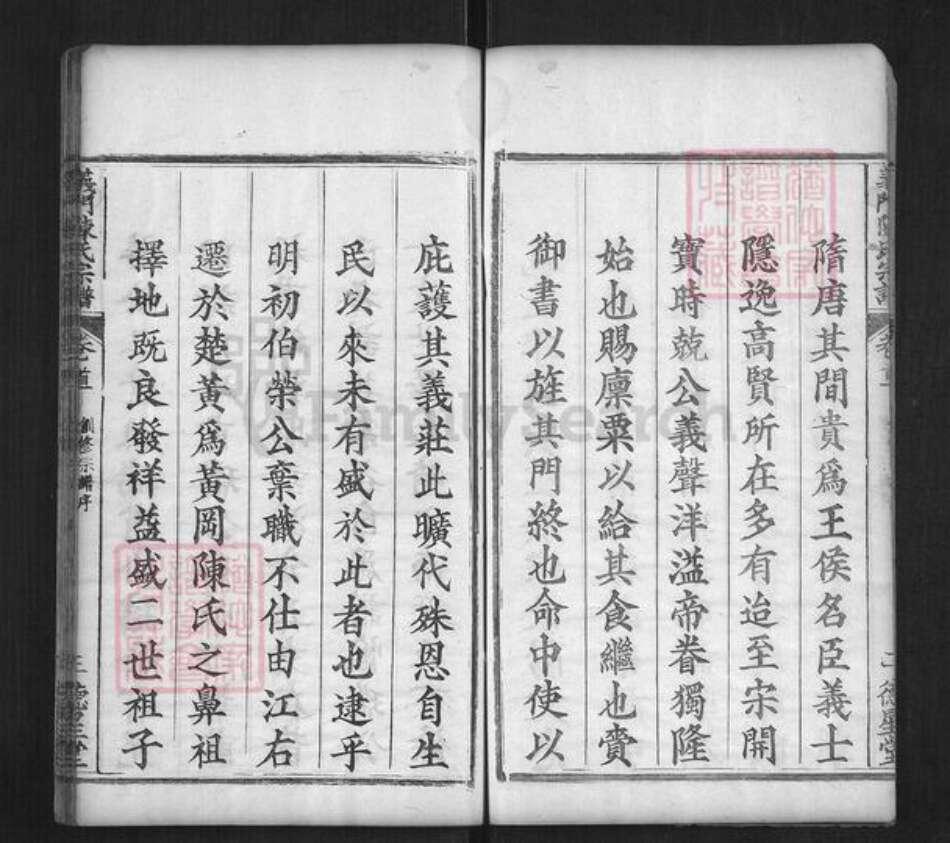 隋唐其間貴為王侯名臣義士
隱逸高賢所在多有迨至宋開
寶時兢公義聲洋溢帝眷獨隆
始也賜廩粟以給其食繼也賚
御書以旌其門終也命中使以
庇護其義莊此曠代殊恩自生
民以來未有盛於此者也逮乎
明初伯榮公棄職不仕由江右
遷於楚黃爲黃岡陳氏之鼻祖
擇地既良發祥益盛二世祖子
義門陳氏宗譜
卷首
創修宗譜序
三
德星堂
FamilySearch